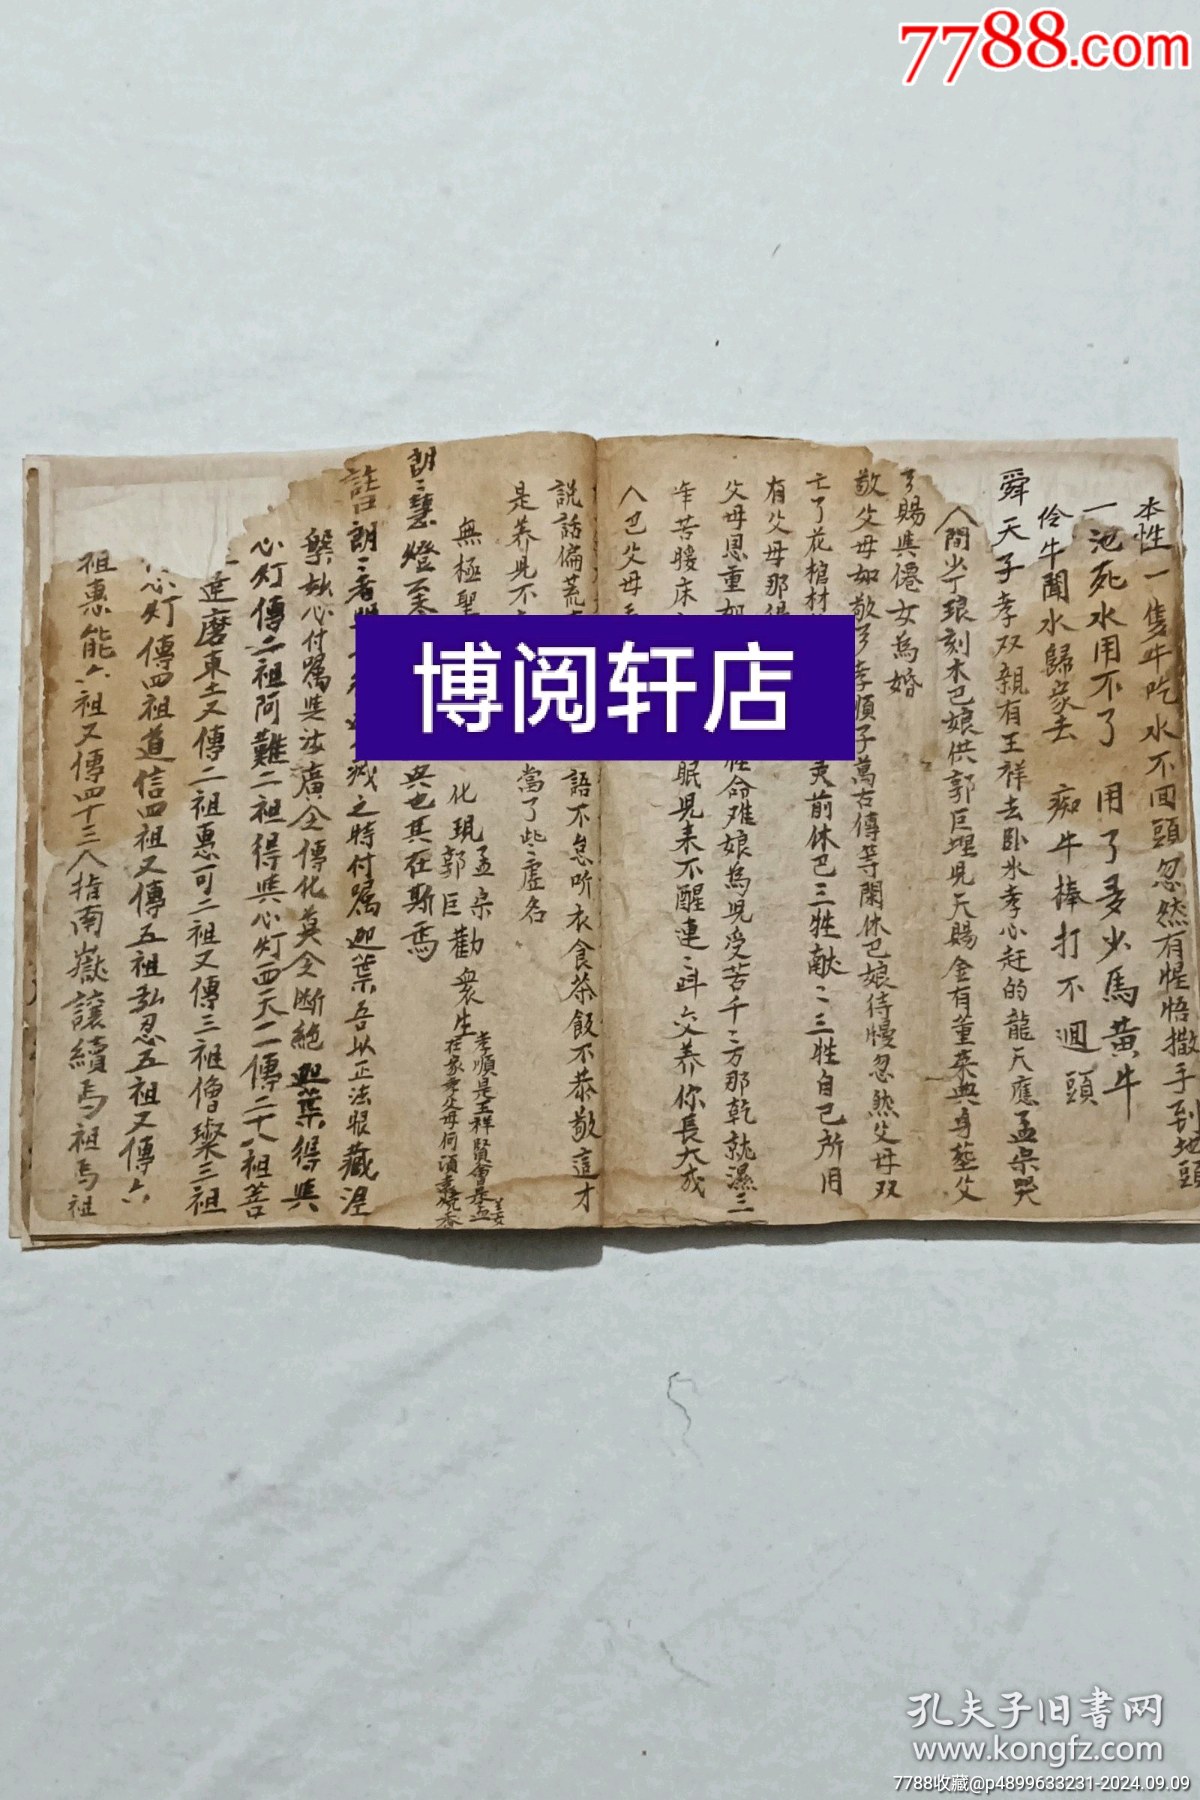 7788.com
本性一隻牛吃水不回頭忽然有惺悟撒手到地頭
一池死水用不了 用了多少馬黃牛
伶牛聞水歸家去 痴牛棒打不迴頭
舜天子孝双親有王祥去卧氷孝心赶的龍天應孟宗哭
人間少丁琅刻木巴娘供郭巨埋児天賜金有董英典身塟父
賜與僊女為婚
敬父母如敬了孝順子萬古傳等閑休巴娘待慢忽然父母双
亡了花棺材 夷前休巴三牲献〻三牲自己所用
有父母那
父母恩重如 命难娘為児受苦千〻方那乾就濕三
年苦腰床 眠児未不醒連〻 交养你長大成
人巴父母
說話偏荒 語不怠听衣食茶飯不恭敬這才
是养児不 當了些虛名
無極聖 化現孟宗郭巨勸衆生 孝順是王祥賢會是孟姜女 在家孝父母何須
朗〻慧燈 典也其在斯焉
註曰朗〻者 滅之時付嘱迦葉吾以正法眼藏涅
槃妙心付嘱與汝廣令傳化莫令断絕迦葉得與
心灯傳二祖阿難二祖得與心灯西天一傳二十八祖菩
達磨東土又傳二祖惠可二祖又傳三祖僧璨三祖
心灯傳四祖道信四祖又傳五祖弘忍五祖又傳六
祖惠能六祖又傳四十三人指南嶽讓續馬祖馬祖
博阅轩店
孔夫子旧书网
www.kongfz.com
7788收藏@p4899633231-2024.09.09